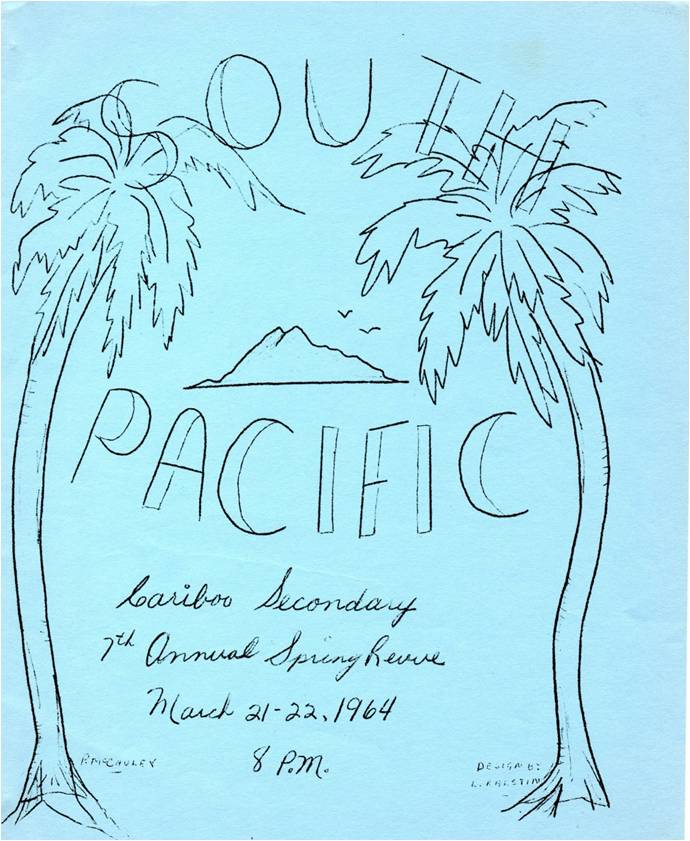 SOUTH
PACIFIC
Cariboo Secondary
7th Annual Spring Revue
March 21-22, 1964
8 P.M.
P. McCAULEY
DESIGN BY:
L. RALSTIN